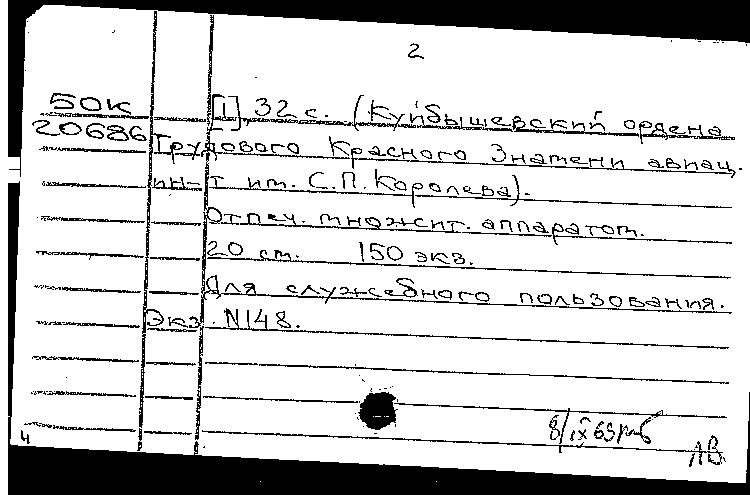 2
50К [1], 32 с. (Куйбышевский ордена
20686 Трудового Красного Знамени авиац.
ин-т им. С.П.Королева).
Отпеч. множит. аппаратом.
20 см. 150 экз.
Для служебного пользования.
Экз. N148.
8/IX 69
АВ
4